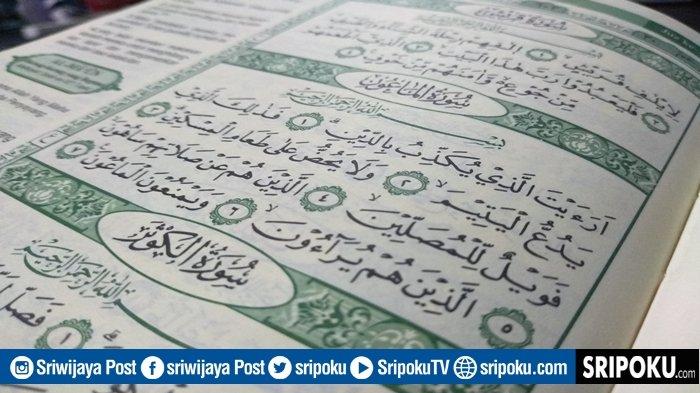 سُوْرَةُ قُرَيْشٍ
لِاِيْلٰفِ قُرَيْشٍۙ ١ اٖلٰفِهِمْ رِحْلَةَ الشِّتَاۤءِ وَالصَّيْفِۚ
٢ فَلْيَعْبُدُوْا رَبَّ هٰذَا الْبَيْتِۙ ٣ الَّذِيْٓ اَطْعَمَهُمْ
مِّنْ جُوْعٍ وَّاٰمَنَهُمْ مِّنْ خَوْفٍ ٤
سُوْرَةُ الْمَاعُوْنَ
بِسْمِ اللّٰهِ الرَّحْمٰنِ الرَّحِيْمِ
اَرَءَيْتَ الَّذِيْ يُكَذِّبُ بِالدِّيْنِۗ ١ فَذٰلِكَ الَّذِيْ
يَدُعُّ الْيَتِيْمَۙ ٢ وَلَا يَحُضُّ عَلٰى طَعَامِ الْمِسْكِيْنِۗ ٣
فَوَيْلٌ لِّلْمُصَلِّيْنَۙ ٤ الَّذِيْنَ هُمْ عَنْ صَلَاتِهِمْ سَاهُوْنَۙ
٥ الَّذِيْنَ هُمْ يُرَاۤءُوْنَۙ ٦ وَيَمْنَعُوْنَ الْمَاعُوْنَ ٧
سُوْرَةُ الْكَوْثَرِ
بِسْمِ اللّٰهِ الرَّحْمٰنِ الرَّحِيْمِ
١ فَصَلِّ
Sriwijaya Post sriwijaya Post sripoku SripokuTV sripoku.com
SRIPOKU.com